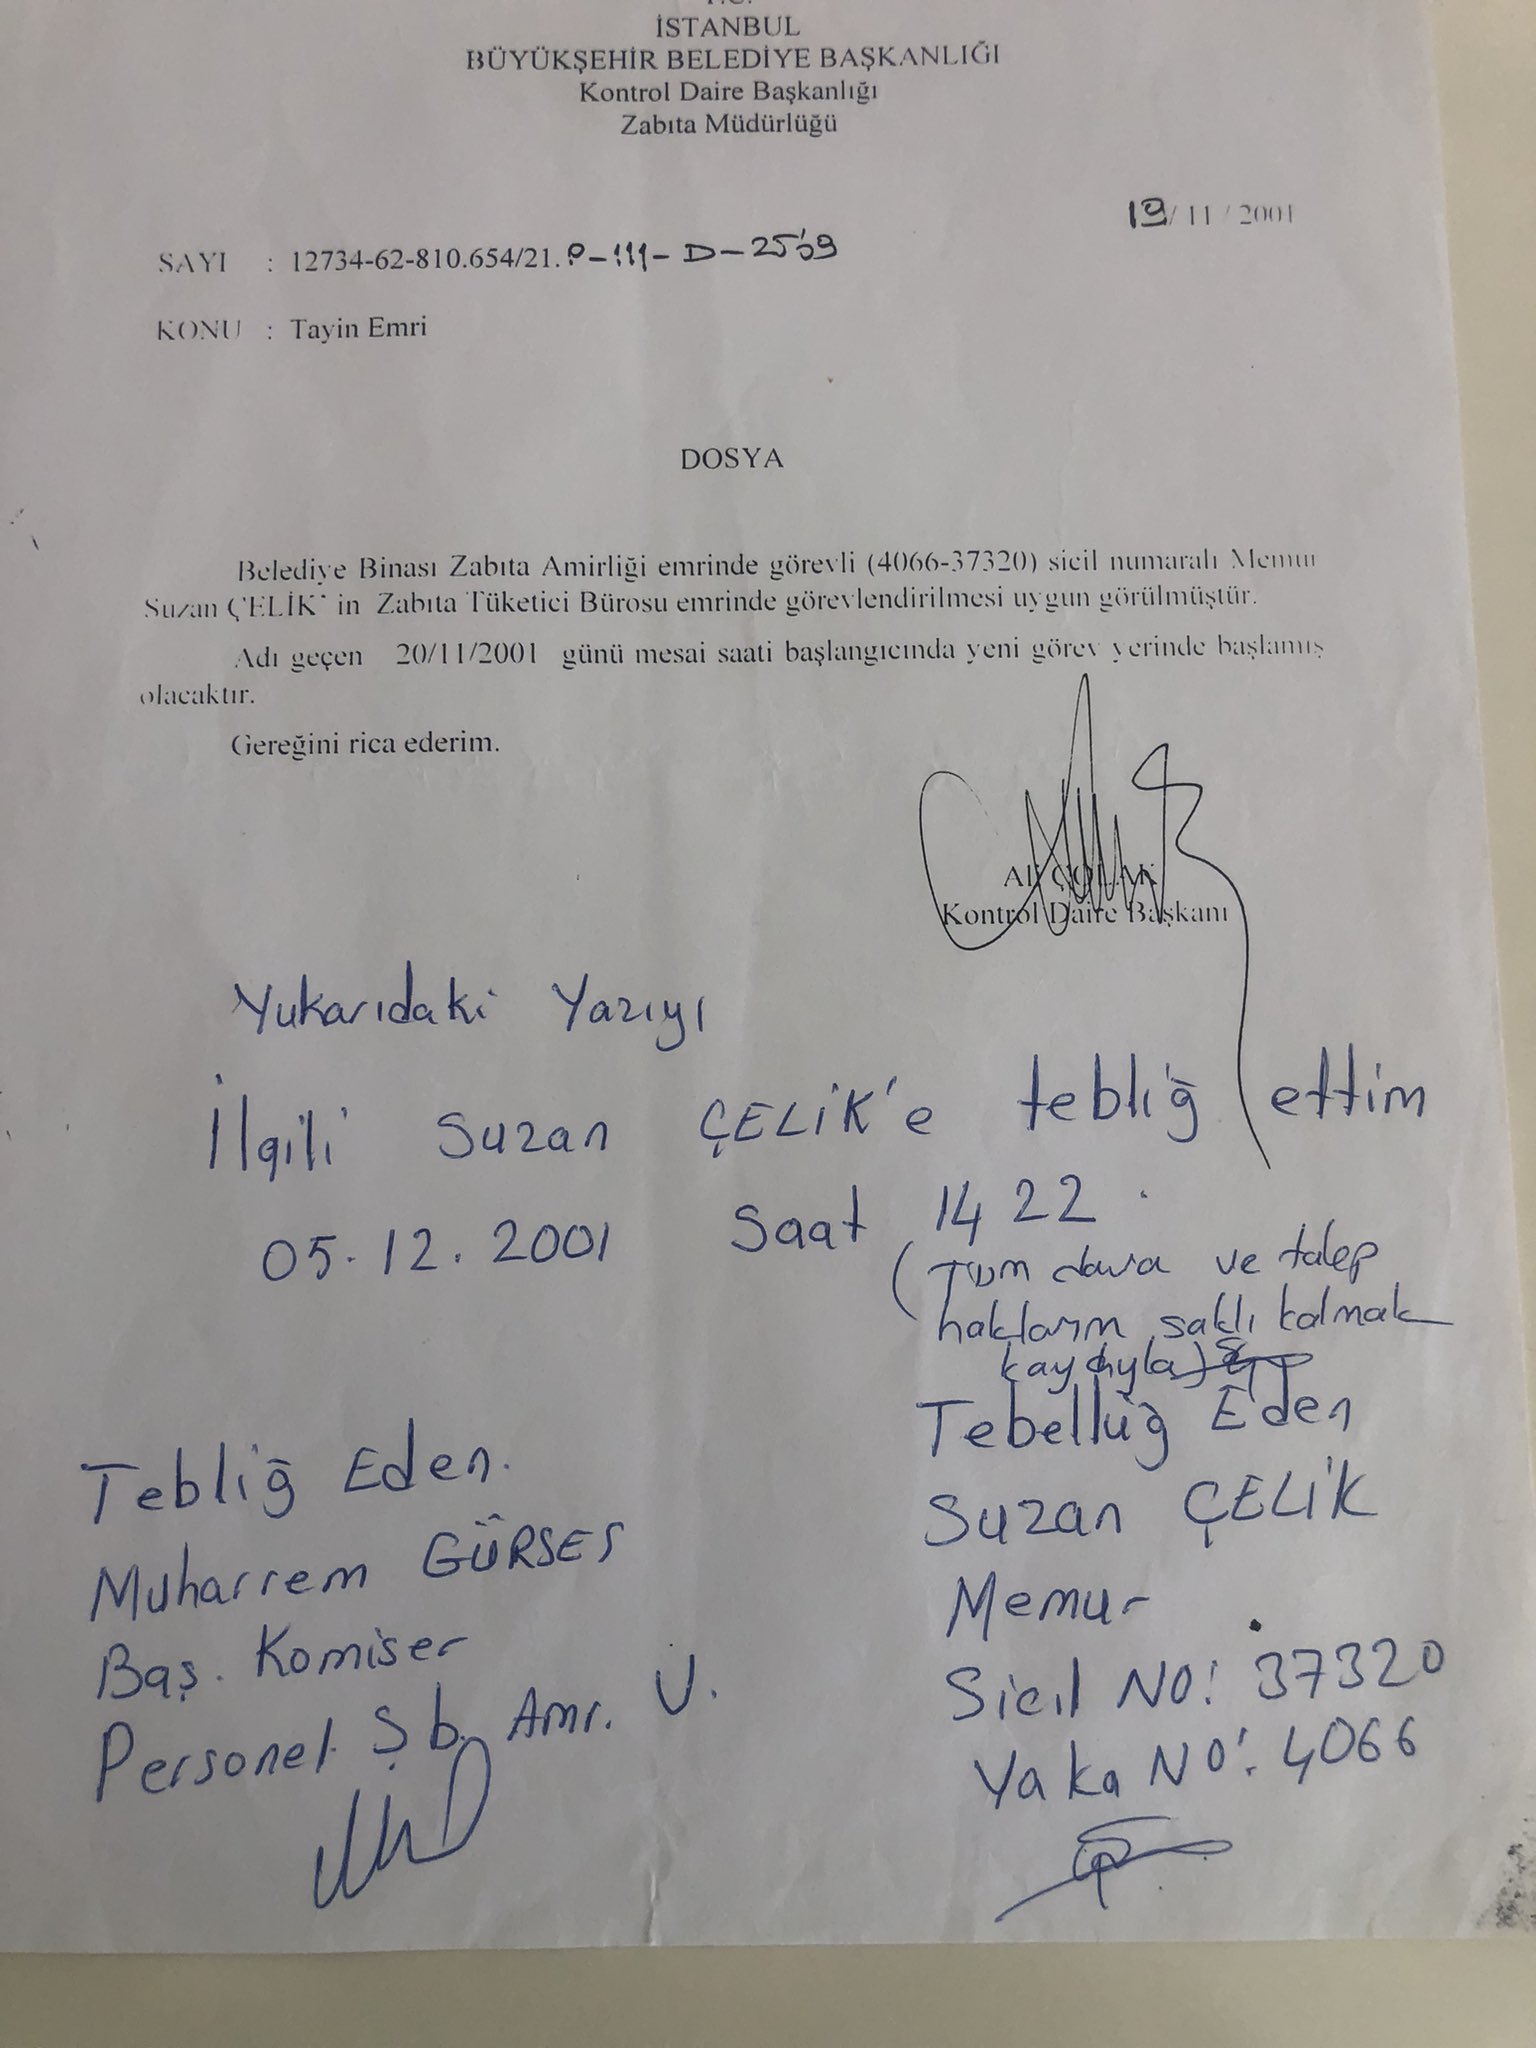 T.C.
İSTANBUL
BÜYÜKŞEHİR BELEDİYE BAŞKANLIĞI
Kontrol Daire Başkanlığı
Zabıta Müdürlüğü
19/11/2001
SAYI : 12734-62-810.654/21.P-111-D-2509
KONU : Tayin Emri
DOSYA
Belediye Binası Zabıta Amirliği emrinde görevli (4066-37320) sicil numaralı Memur
Suzan ÇELİK' in Zabıta Tüketici Bürosu emrinde görevlendirilmesi uygun görülmüştür.
Adı geçen 20/11/2001 günü mesai saati başlangıcında yeni görev yerinde başlamış
olacaktır.
Gereğini rica ederim.
Ali ÇOLAK
Kontrol Daire Başkanı
Yukarıdaki Yazıyı
İlgili Suzan ÇELİK'e tebliğ ettim
05.12.2001 Saat 14 22.
(Tüm dava ve talep
haklarım saklı kalmak
kaydıyla)
Tebliğ Eden.
Muharrem GÜRSES
Baş. Komiser
Personel Şb. Amr. V.
Tebellüğ Eden
Suzan ÇELİK
Memur
Sicil NO: 37320
Yaka NO: 4066